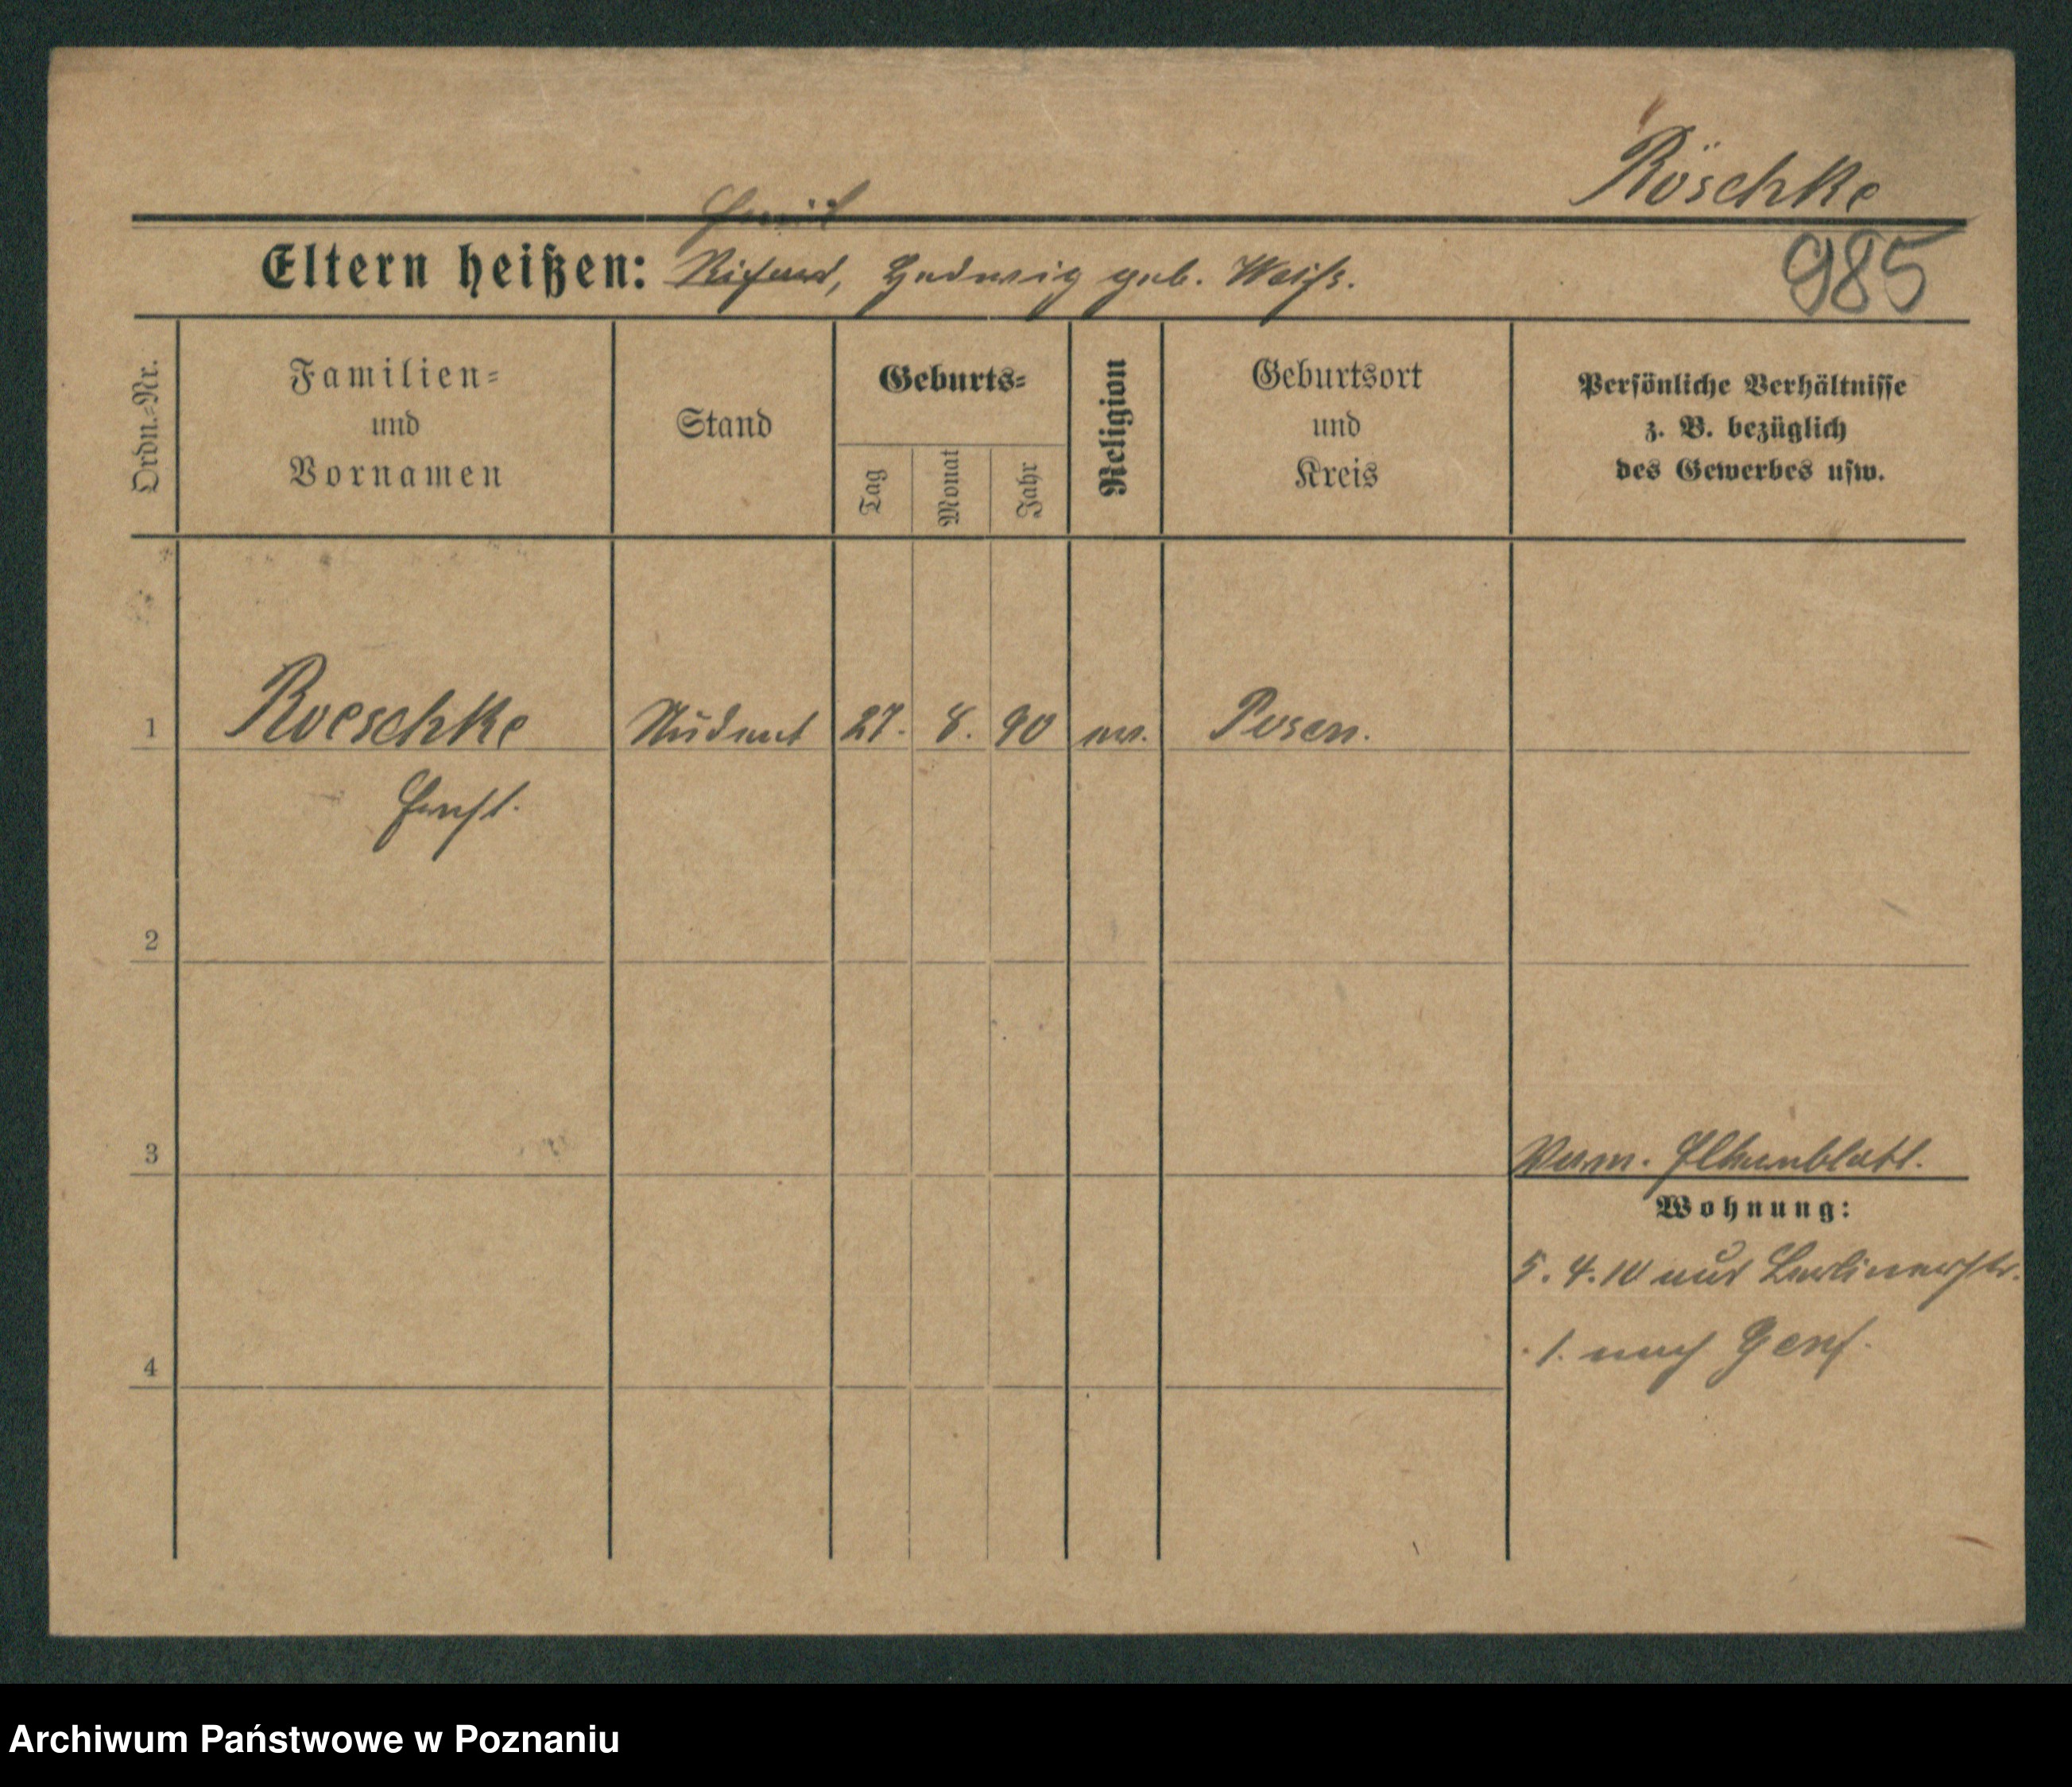 Röschke
Emil
Eltern heißen: Richard, Hedwig geb. Weiss.
985
Ordn.=Nr.
Familien=
und
Vornamen
Stand
Geburts=
Tag
Monat
Jahr
Religion
Geburtsort
und
Kreis
Persönliche Verhältnisse
z. B. bezüglich
des Gewerbes usw.
1 Roeschke Student 27. 8. 90 ev. Posen.
Ernst.
2
3
Verm. Elternblatt.
Wohnung:
5.4.10 aus Berlinerstr.
1. nach Genf.
4
Archiwum Państwowe w Poznaniu